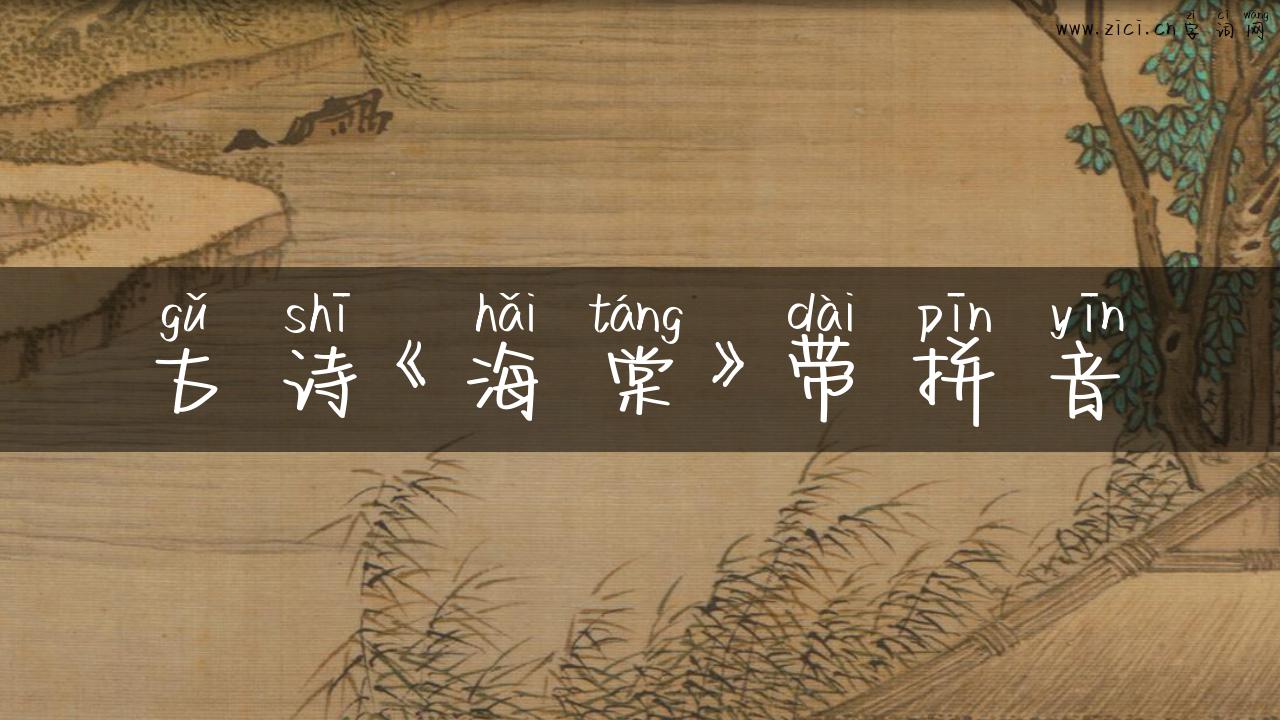 zì cí wǎng
www.zici.cn字词网
gǔ shī hǎi táng dài pīn yīn
古诗《海棠》带拼音